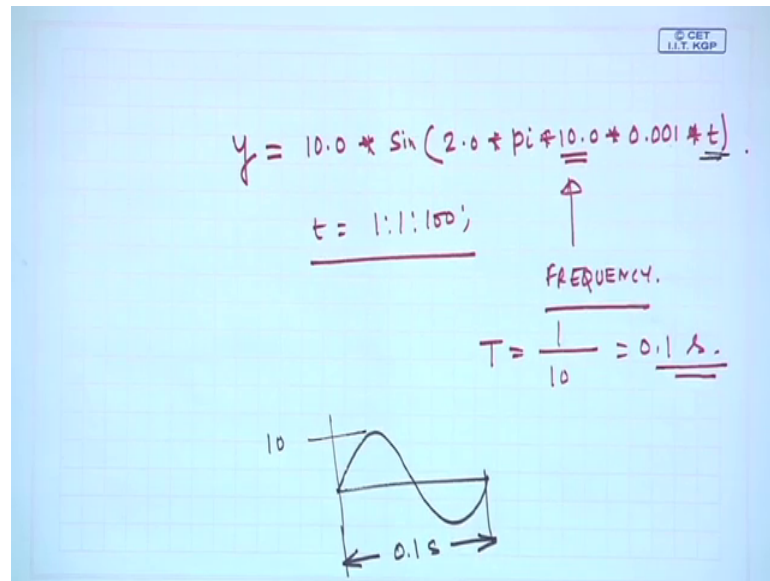 © CET
I.I.T. KGP
y = 10.0 * Sin (2.0 * pi * 10.0 * 0.001 * t) .
t = 1:1:100;
FREQUENCY.
T = 1/10 = 0.1 s.
10
0.1 s